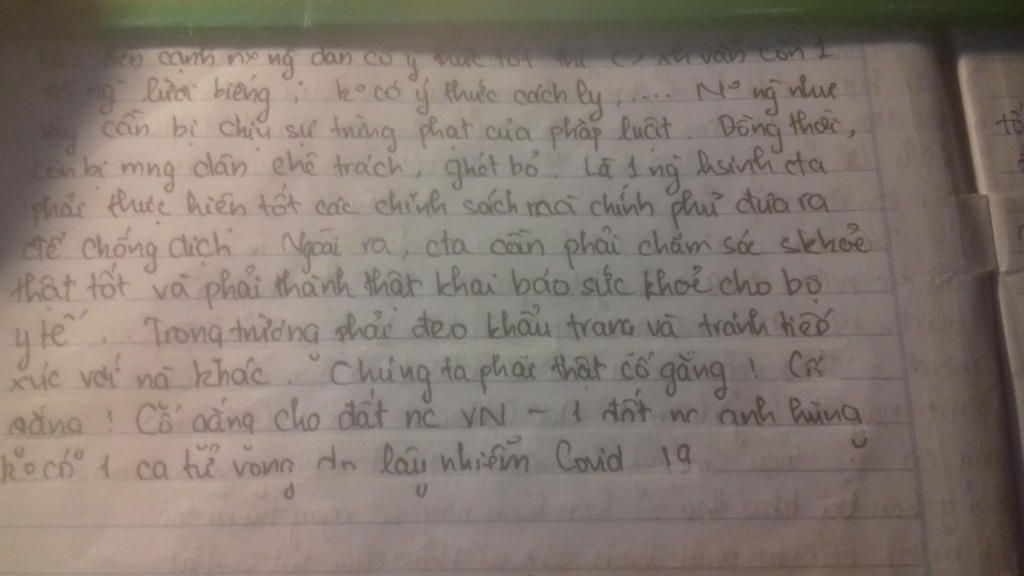 Bên cạnh ng dân có ý thức tốt thì xh vẫn còn 1
số ng lười biếng ; k° có ý thức cách ly, .... N° ng như
vậy cần bị chịu sự trừng phạt của pháp luật. Đồng thời,
còn bị mng dân chê trách, ghét bỏ. Là 1 ng hsinh cta
phải thực hiện tốt các chính sách mà chính phủ đưa ra
để chống dịch. Ngoài ra, cta cần phải chăm sóc skhoẻ
thật tốt và phải thành thật khai báo sức khoẻ cho bộ
y tế. Trong trường phải đeo khẩu trang và tránh tiếp
xúc với ng khác. Chúng ta phải thật cố gắng ! Cố
gắng ! Cố gắng cho đất nc VN - 1 đất nc anh hùng
k° có 1 ca tử vong do lây nhiễm Covid 19